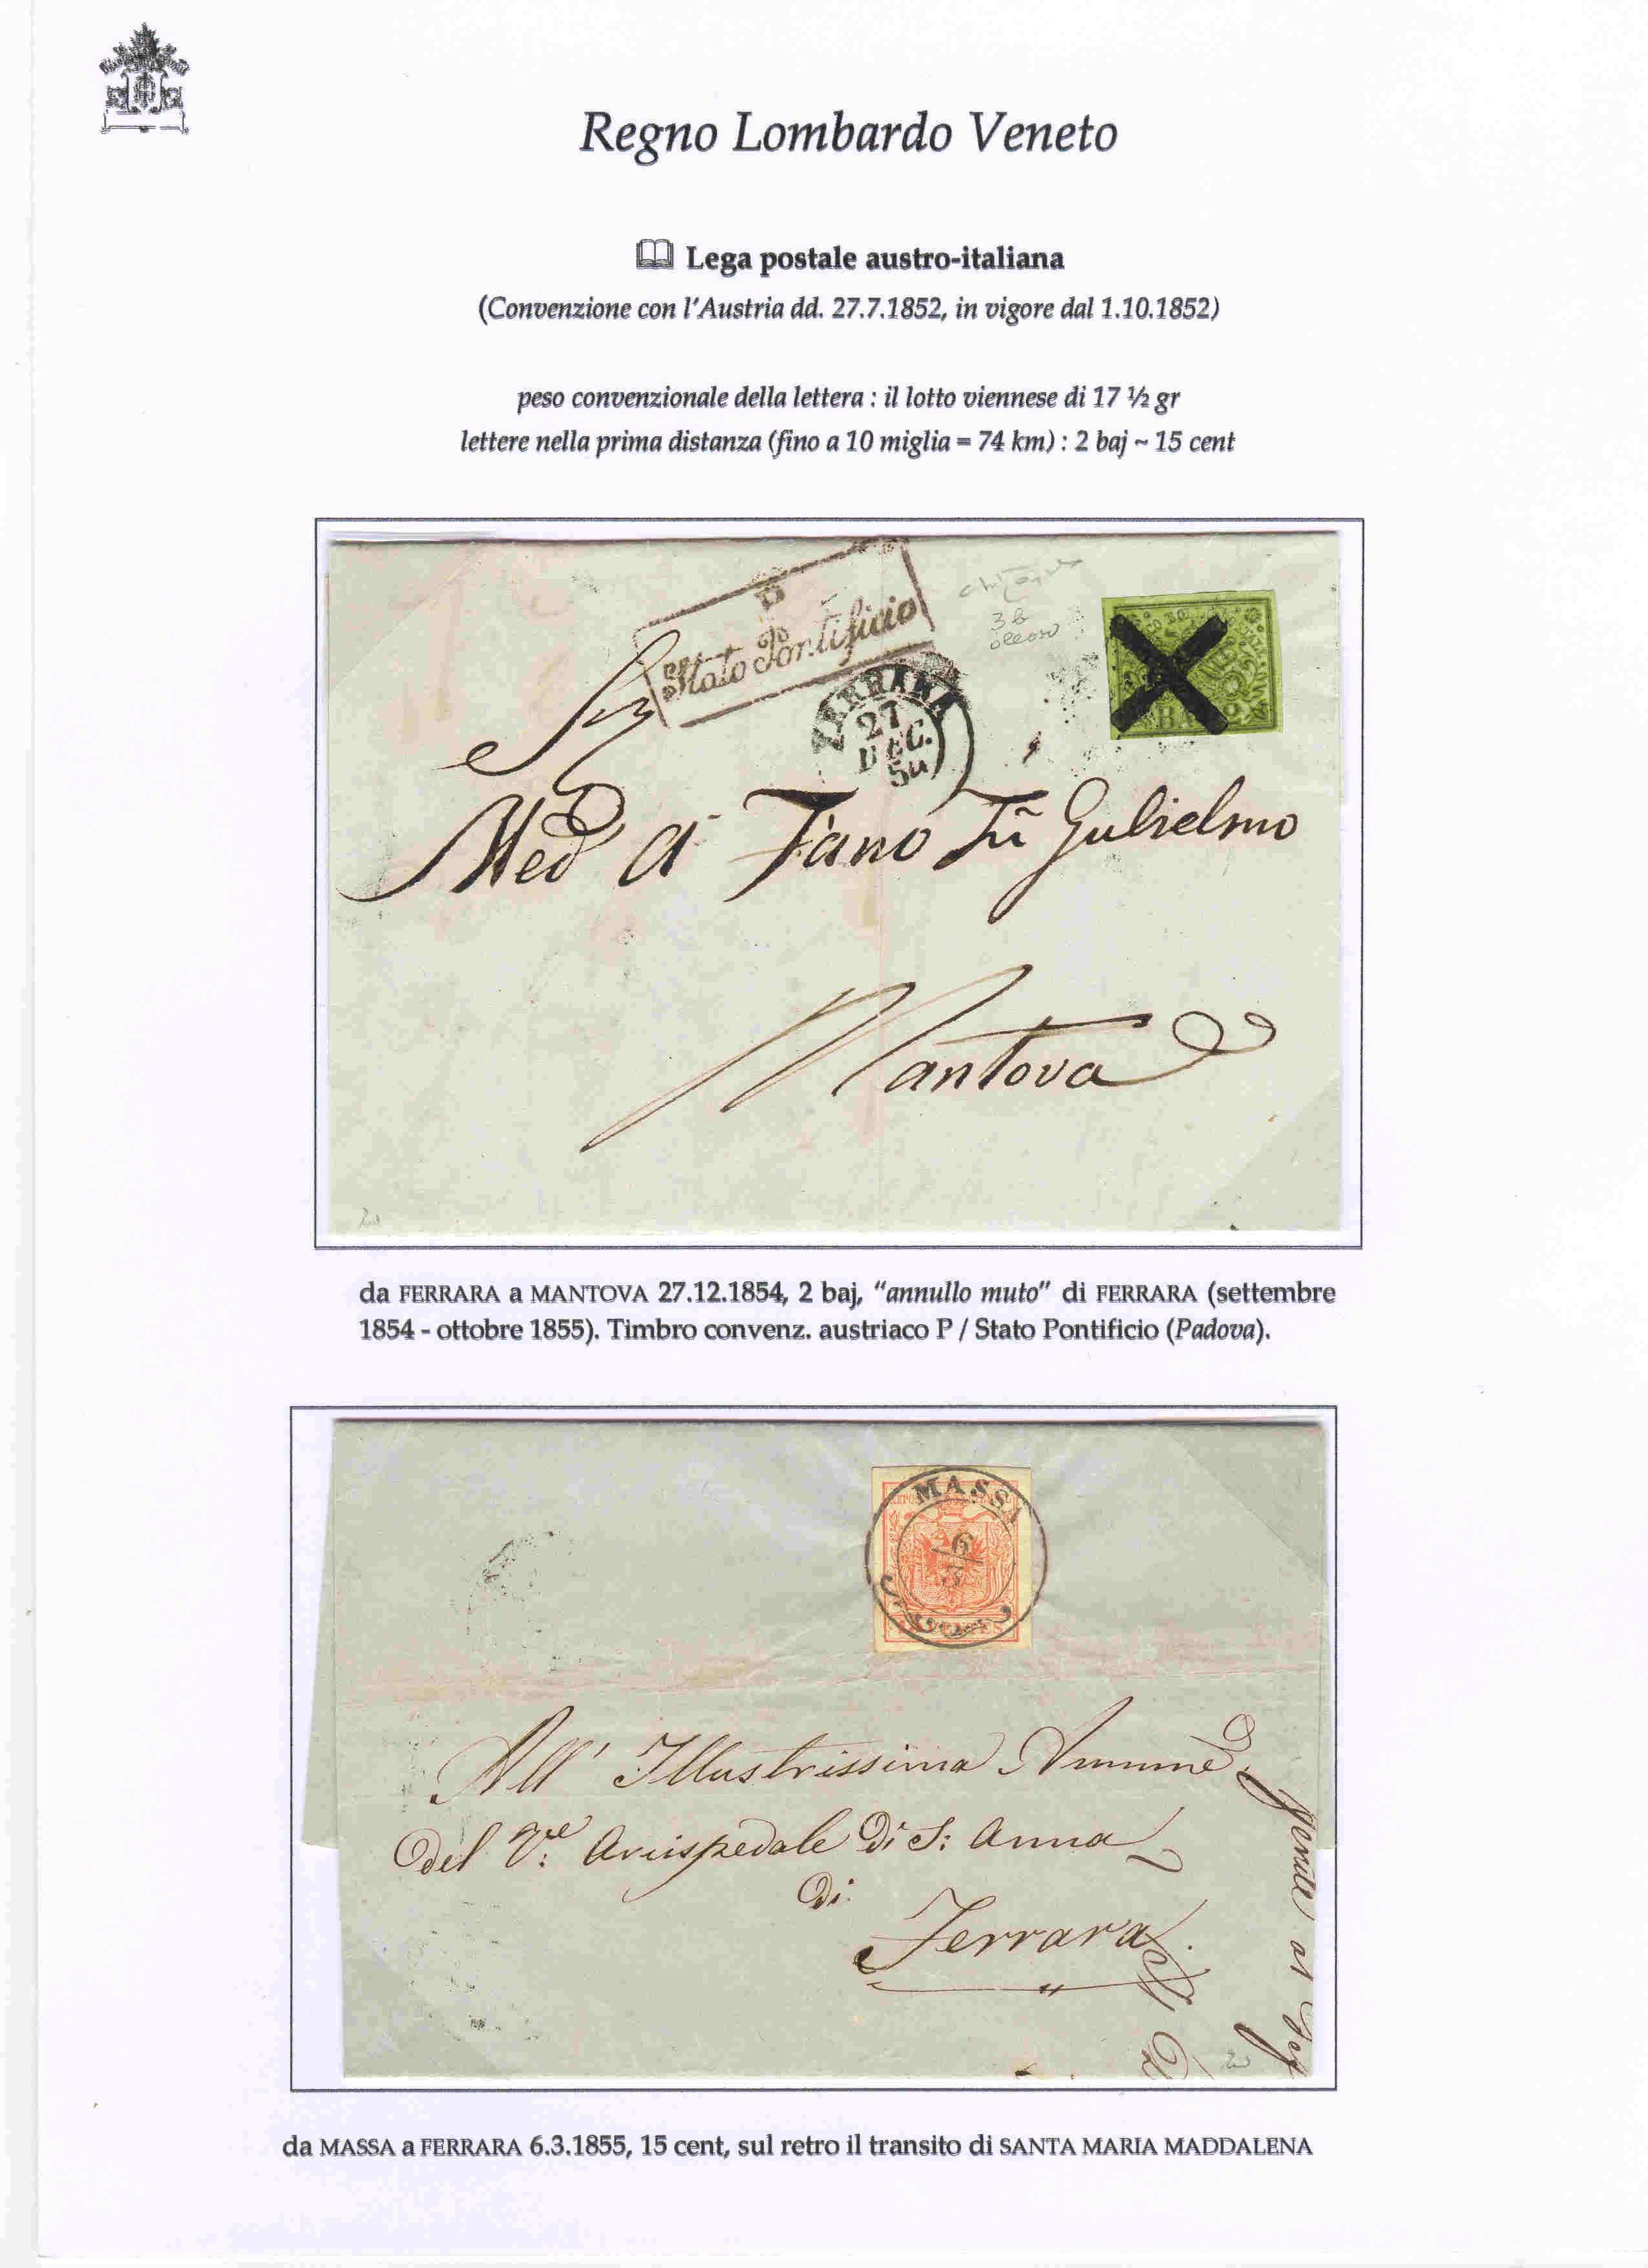 Regno Lombardo Veneto
Lega postale austro-italiana
(Convenzione con l'Austria dd. 27.7.1852, in vigore dal 1.10.1852)
peso convenzionale della lettera : il lotto viennese di 17 ½ gr
lettere nella prima distanza (fino a 10 miglia = 74 km) : 2 baj ~ 15 cent
P
Stato Pontificio
3 b
FERRARA
27
DEC.
54
BAJ
Med a Fano fu Gulielmo
Mantova
da FERRARA a MANTOVA 27.12.1854, 2 baj, "annullo muto" di FERRARA (settembre
1854 - ottobre 1855). Timbro convenz. austriaco P / Stato Pontificio (Padova).
MASSA
6
3
CENTES
All' Illustrissima
Del Arcispedale Di S: Anna
Di
Ferrara
da MASSA a FERRARA 6.3.1855, 15 cent, sul retro il transito di SANTA MARIA MADDALENA